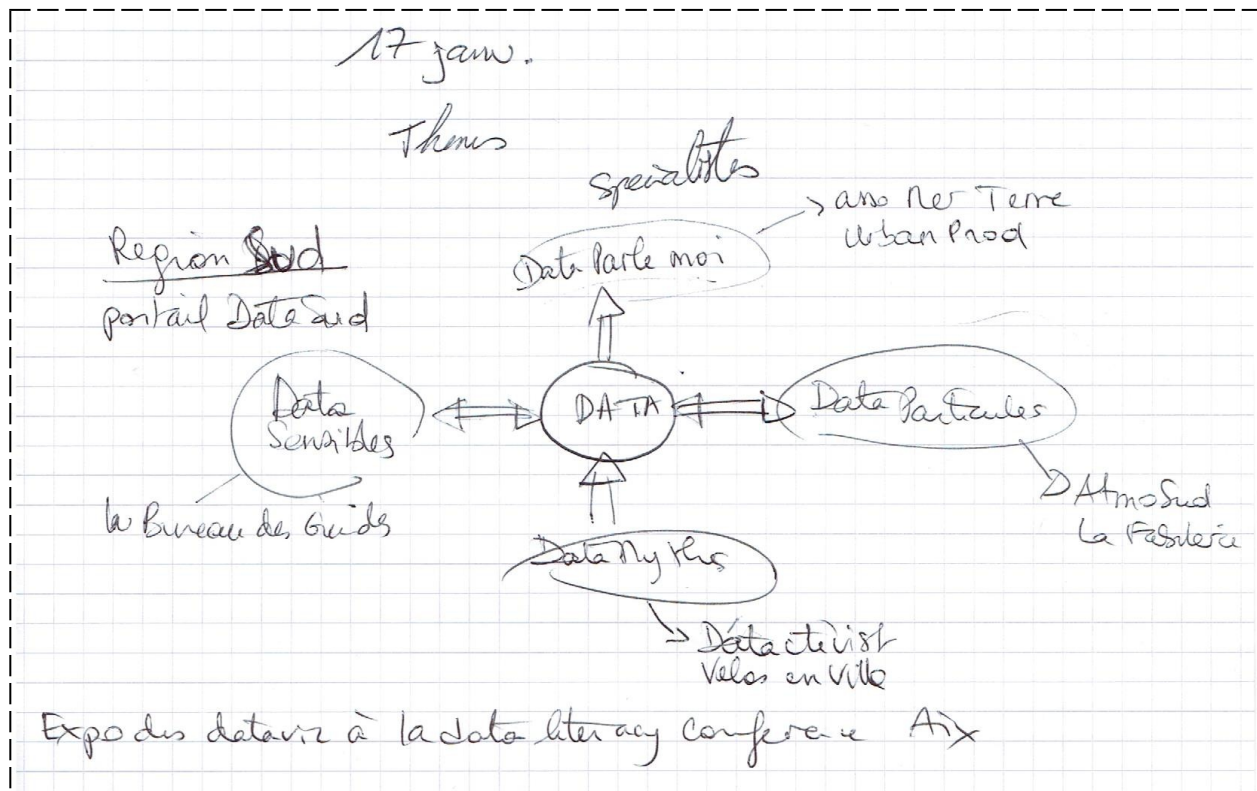 17 janv.
Themes
spécialistes
Région Sud
portail DataSud
Data Parle moi
asso Mer Terre
Urban Prod
Data
Sensibles
DATA
Data Particules
le Bureau des Guides
AtmoSud
La Fabulerie
Data Mythes
Datactivist
Vélos en Ville
Expo des dataviz à la data literacy conference Aix